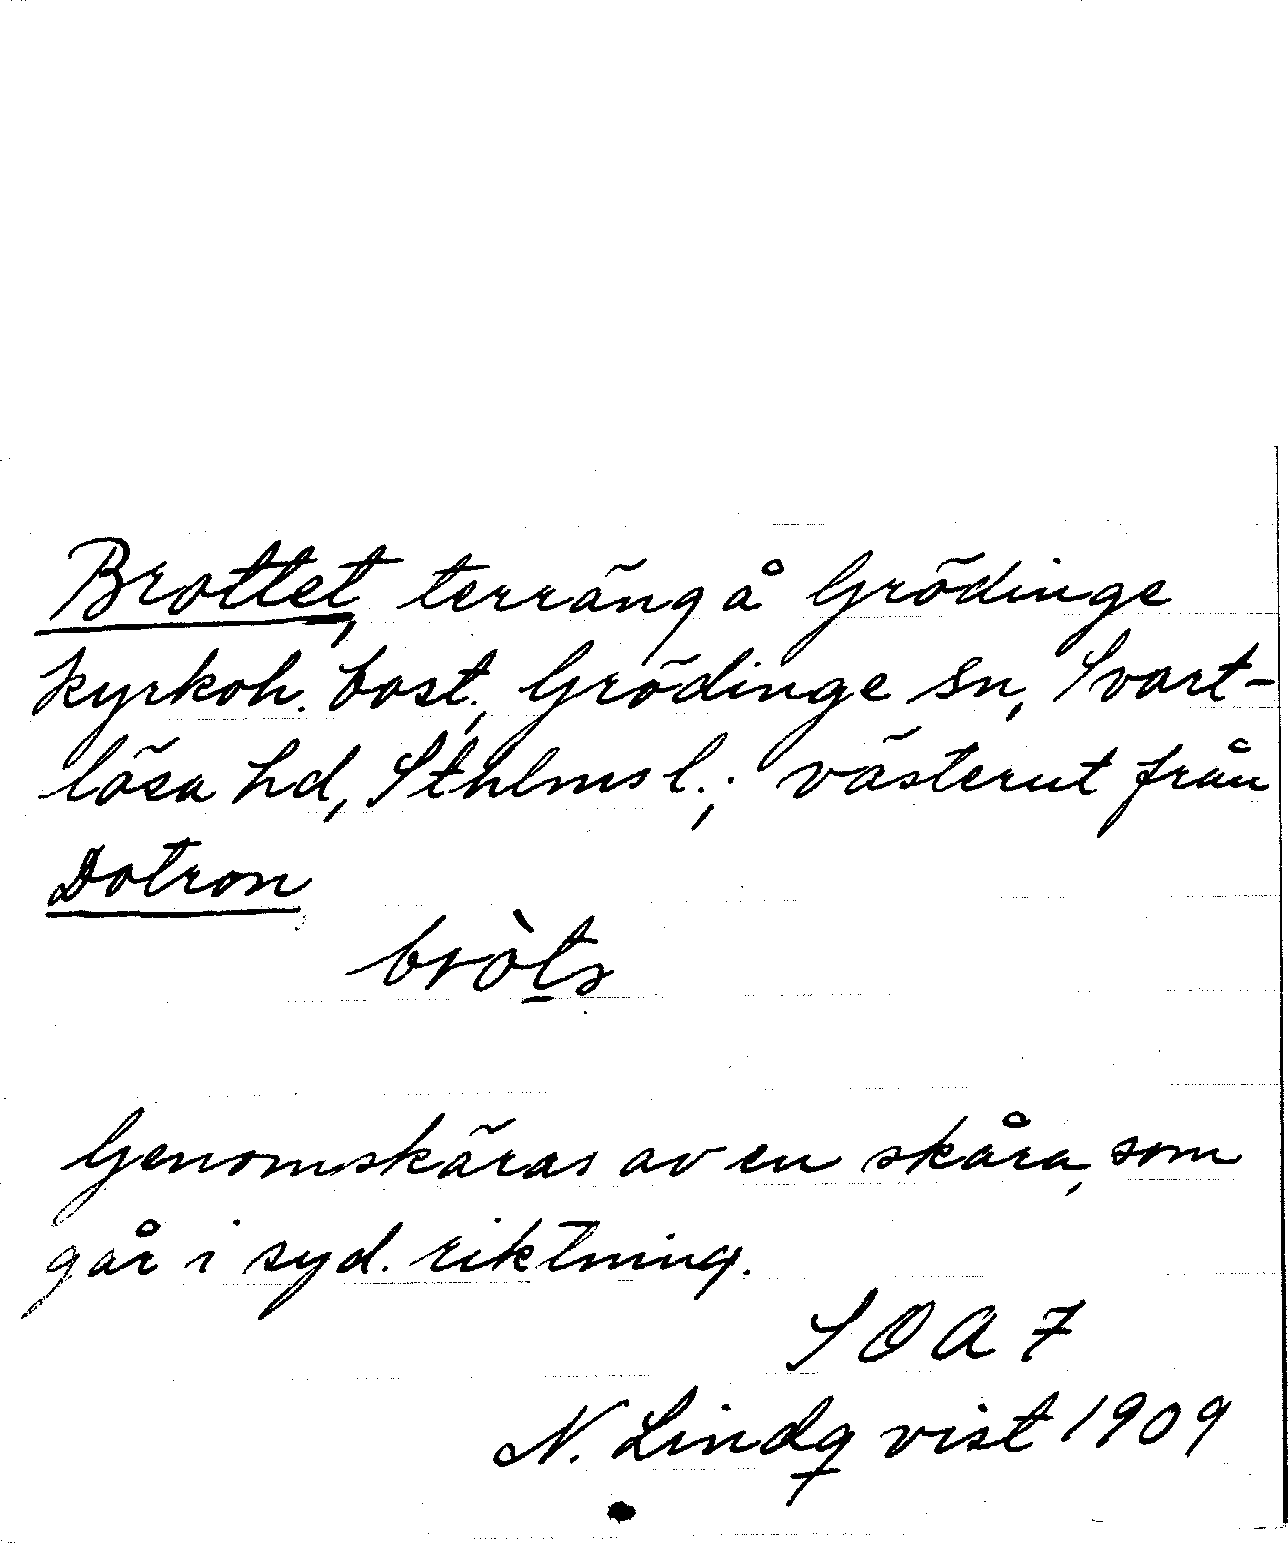 Brottet, terräng å Grödinge
kyrkoh. bost., Grödinge sn, Svart-
lösa hd, Sthlms l.; västerut från
Dotron
Genomskäras av en skåra, som
går i syd. riktning.
SOA 7
N. Lindqvist 1909